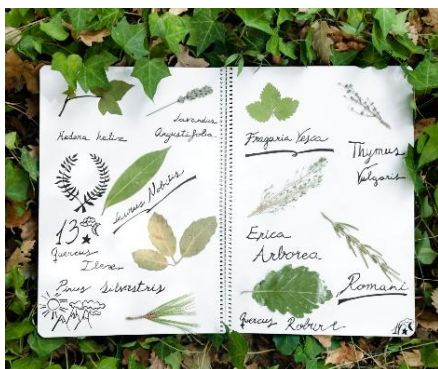 Hedera helix
Lavandus
Angustifolia
Laurus Nobilis
13
Quercus
Ilex
Pinus Silvestris
Fragaria Vesca
Thymus
Vulgaris
Erica
Arborea
Romani
Quercus Robert